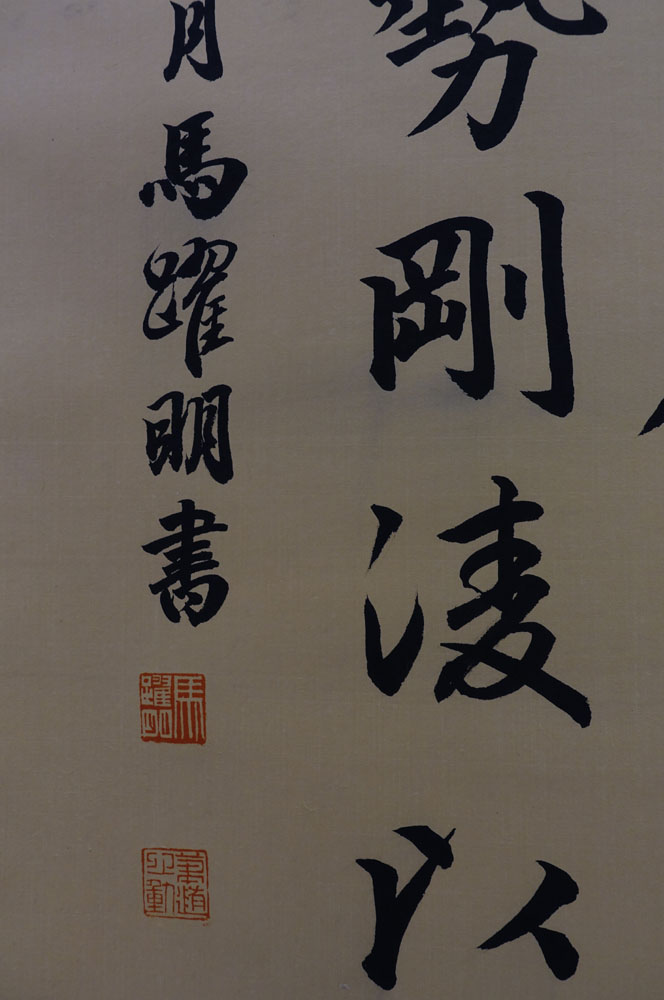 勢剛淩以
月馬躍明書
馬躍明